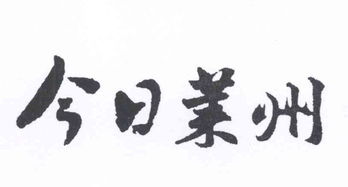 今日莱州